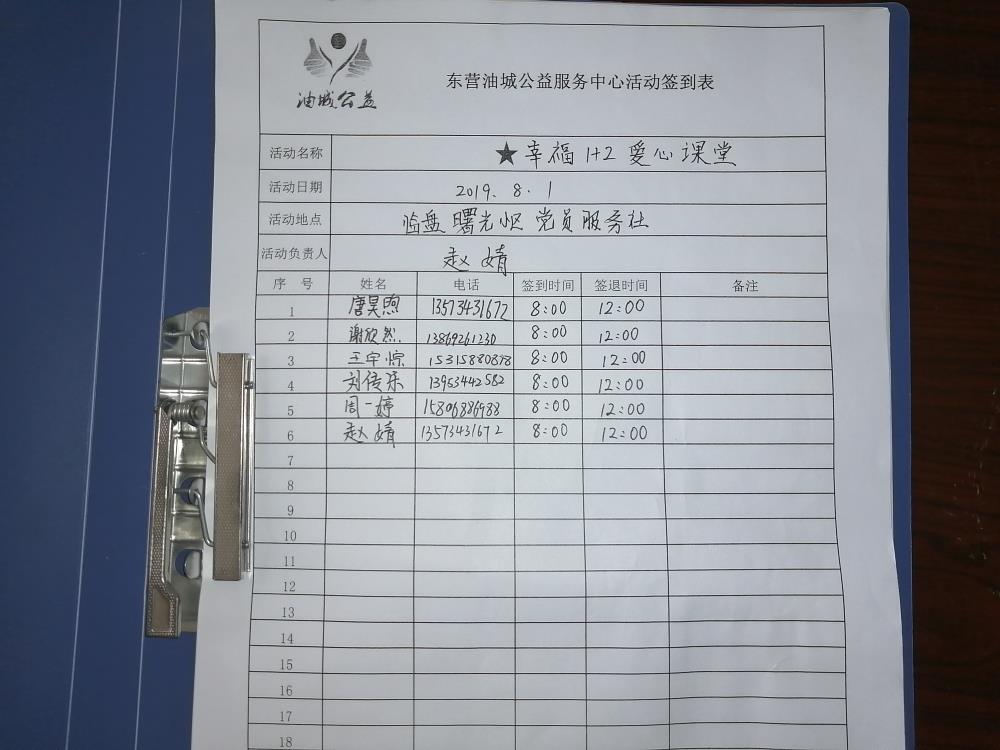 油城公益
东营油城公益服务中心活动签到表
活动名称 ★幸福1+2爱心课堂
活动日期 2019.8.1
活动地点 临盘曙光小区党员服务社
活动负责人 赵婧
序号 姓名 电话 签到时间 签退时间 备注
1 唐昊煦 13573431672 8:00 12:00
2 谢欣然 13869261230 8:00 12:00
3 王宇悰 15315880878 8:00 12:00
4 刘传乐 13953442582 8:00 12:00
5 周一婷 15806886988 8:00 12:00
6 赵婧 13573431672 8:00 12:00
7
8
9
10
11
12
13
14
15
16
17
18